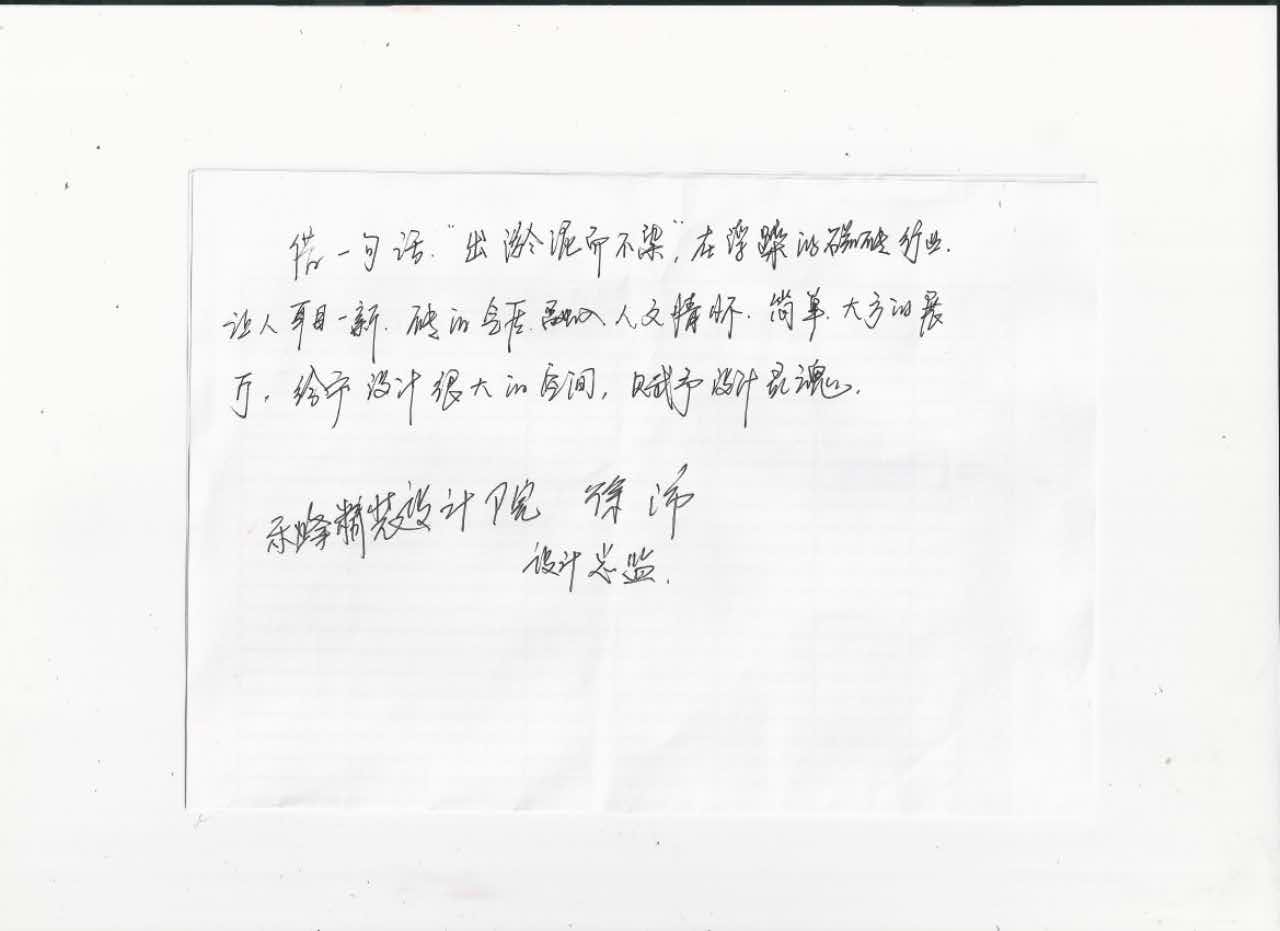 借一句话."出淤泥而不染",在浮躁的磁砖行业.
让人耳目一新.砖的会所.融入人文情怀.简单.大方的展
厅.给予设计很大的空间,赋予设计灵魂.
乐峰精装设计院 徐沛
设计总监.